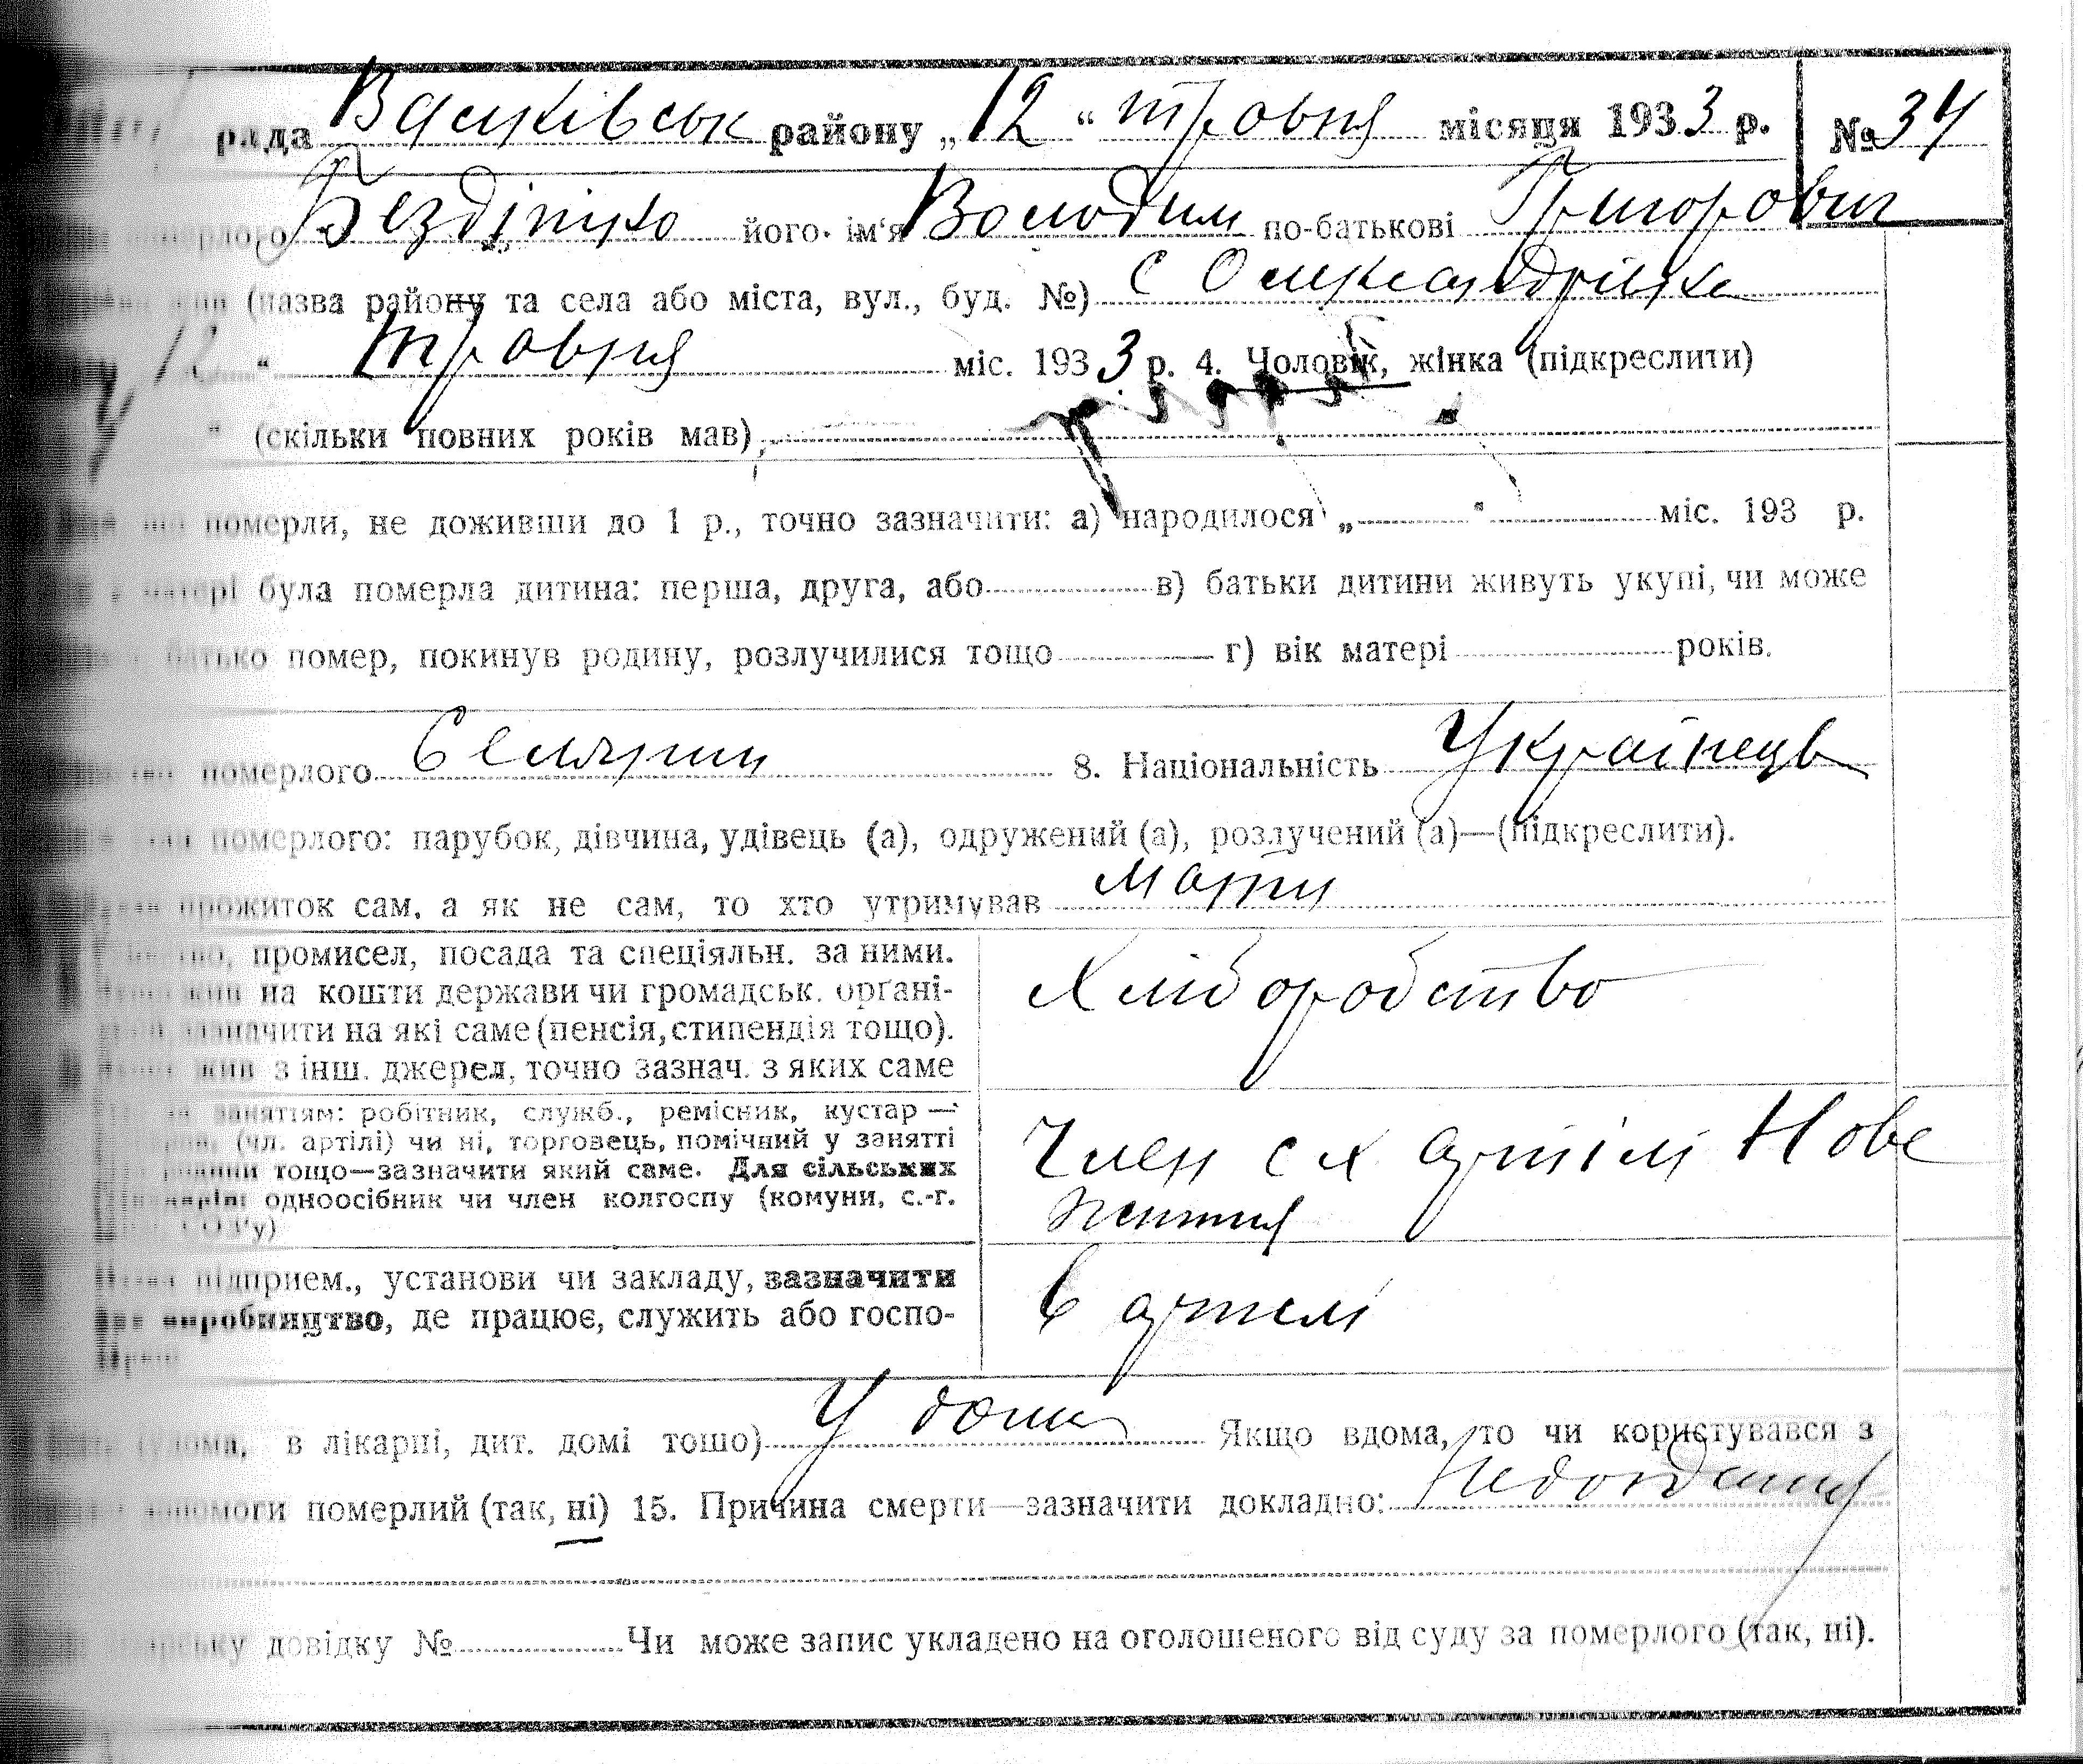 рада Васильківськ району „12“ травня місяця 1933 р. № 34
померлого Бездітко його ім'я Володим по-батькові Григорович
жив (назва району та села або міста, вул., буд. №) с Олександрівка
12 “ травня міс. 1933 р. 4. Чоловік, жінка (підкреслити)
“ (скільки повних років мав)
померли, не доживши до 1 р., точно зазначити: а) народилося „ “ міс. 193 р.
матері була померла дитина: перша, друга, або в) батьки дитини живуть укупі, чи може
батько помер, покинув родину, розлучилися тощо г) вік матері років.
померлого Селянин 8. Національність Українець
померлого: парубок, дівчина, удівець (а), одружений (а), розлучений (а)—(підкреслити).
прожиток сам, а як не сам, то хто утримував мати
промисел, посада та спеціяльн. за ними.
жив на кошти держави чи громадськ. органі-
зазначити на які саме (пенсія, стипендія тощо).
жив з інш. джерел, точно зазнач. з яких саме
Хліборобство
заняттям: робітник, служб., ремісник, кустар —
(чл. артілі) чи ні, торговець, помічний у занятті
тощо—зазначити який саме. Для сільських
одноосібник чи член колгоспу (комуни, с.-г.
СОЗ'у)
Член с х артілі Нове
життя
підприєм., установи чи закладу, зазначити
виробництво, де працює, служить або госпо-
В артелі
(удома, в лікарні, дит. домі тощо) У дома Якщо вдома, то чи користувався з
допомоги померлий (так, ні) 15. Причина смерти—зазначити докладно:
довідку № Чи може запис укладено на оголошеного від суду за померлого (так, ні).